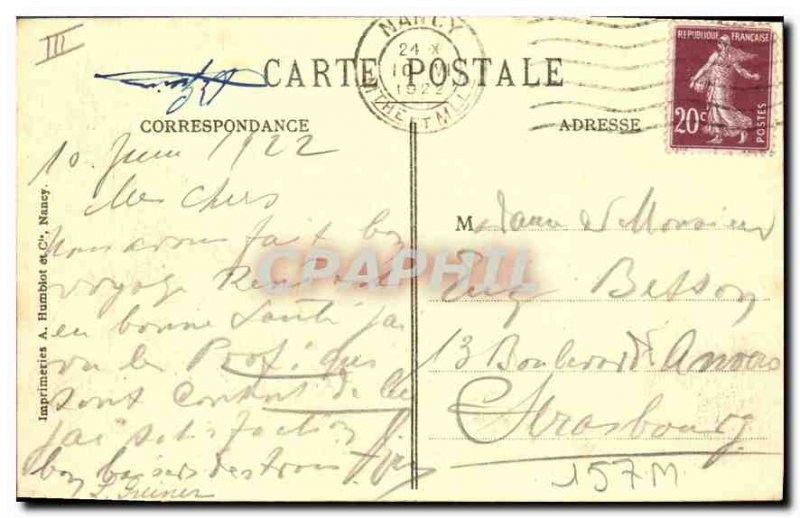 III
CARTE POSTALE
NANCY
24 X
1922
RÉPUBLIQUE FRANÇAISE
20c
POSTES
CORRESPONDANCE
ADRESSE
Imprimeries A. Humblot et Cie, Nancy.
10 Juin 1922
Mes chers
nous avons fait bon
voyage
en bonne santé j'ai
vu les
sont content de
j'ai satisfaction
bon baisers des trois
CPAPHIL
M adame et Monsieur
Eug Besson
13 Boulevard d'Anvers
Strasbourg
157M